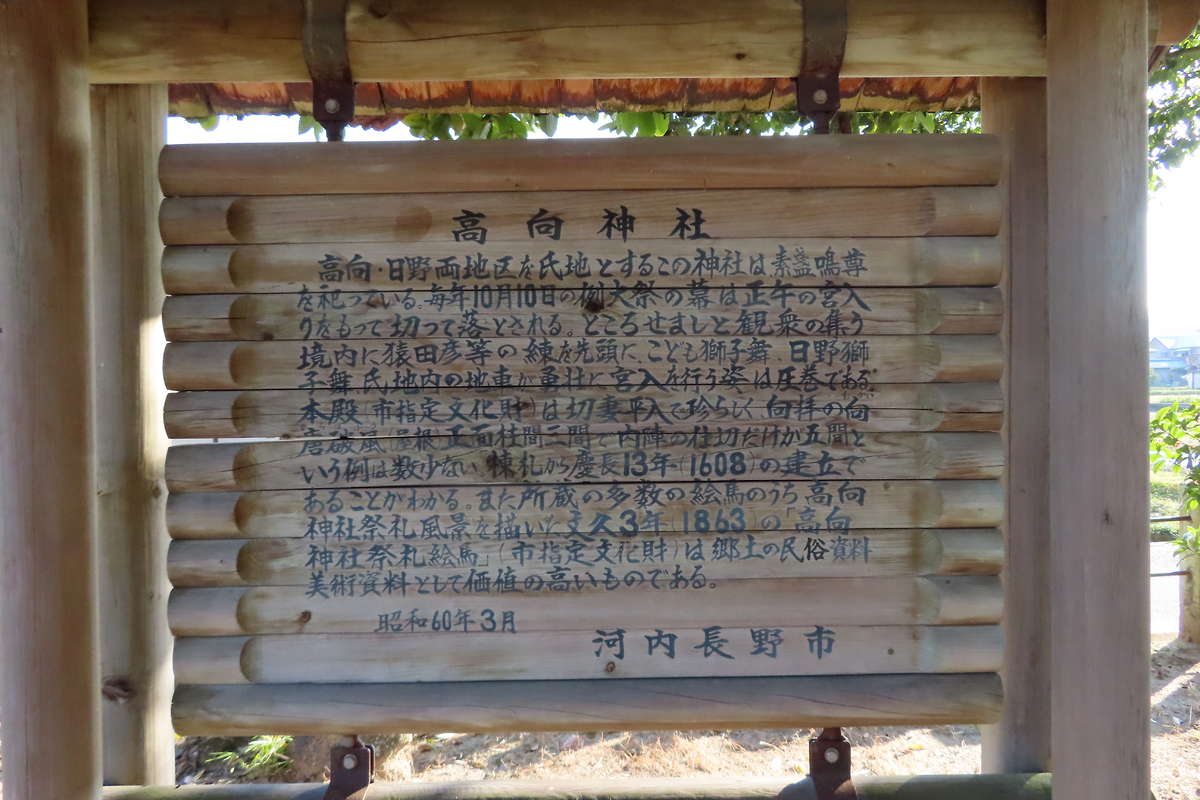 高向神社
高向・日野両地区を氏地とするこの神社は素盞嗚尊
を祀っている。毎年10月10日の例大祭の幕は正午の宮入
りをもって切って落とされる。ところせましと観衆の集う
境内に猿田彦等の練を先頭に、こども獅子舞、日野獅
子舞、氏地内の地車が勇壮に宮入を行う姿は圧巻である。
本殿(市指定文化財)は切妻平入で珍らしく向拝の向
唐破風屋根、正面柱間三間で内陣の仕切だけが五間と
いう例は数少ない。棟札から慶長13年(1608)の建立で
あることがわかる。また所蔵の多数の絵馬のうち高向
神社祭礼風景を描いた文久3年(1863)の「高向
神社祭礼絵馬」(市指定文化財)は郷土の民俗資料
美術資料として価値の高いものである。
昭和60年3月
河内長野市